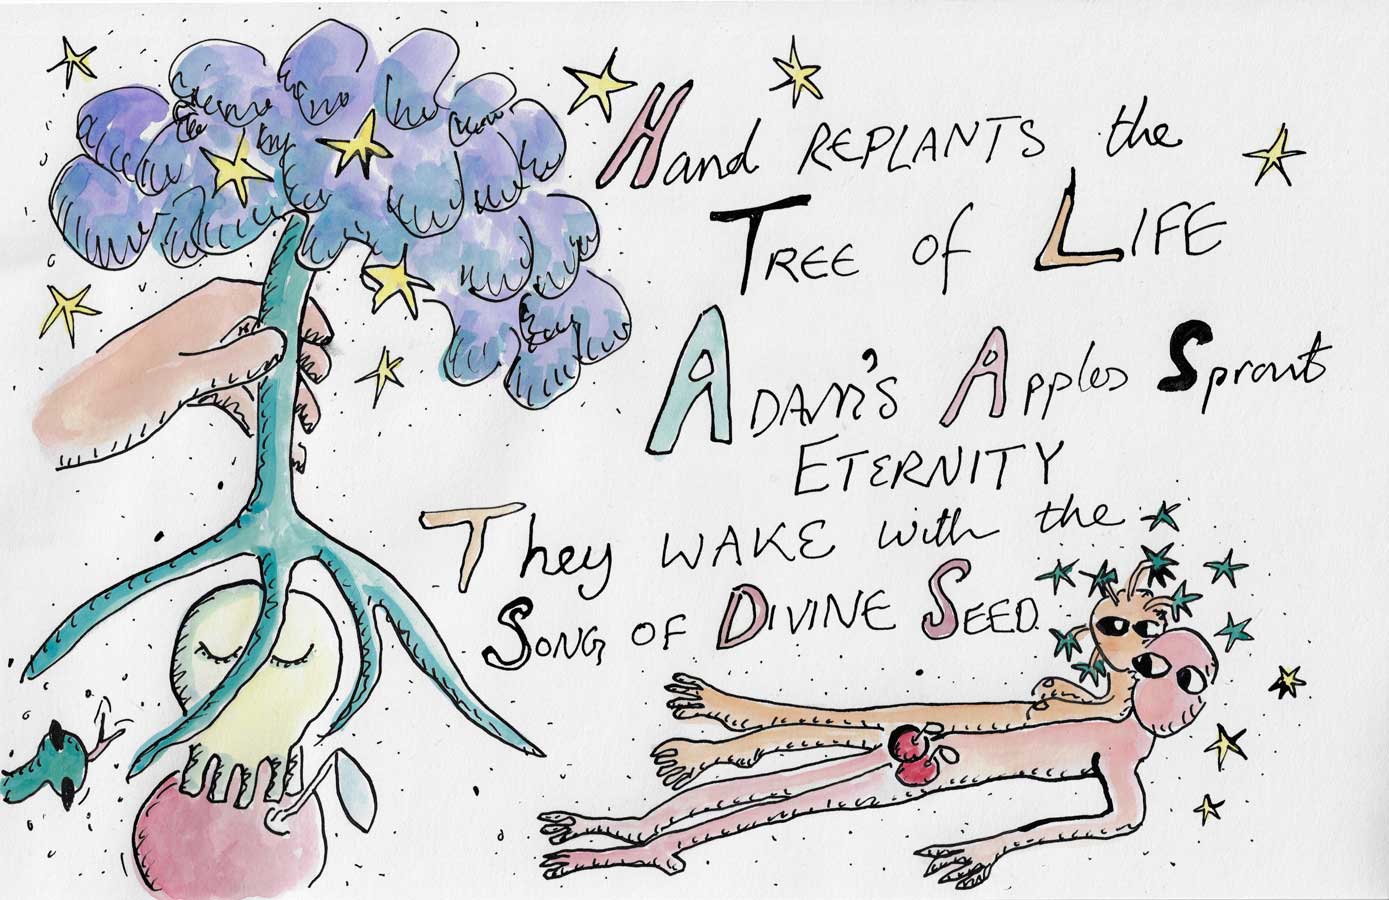 Hand REPLANTS the
TREE of LIFE
ADAM'S Apples Sprout
ETERNITY
They WAKE with the
SONG OF DIVINE SEED.